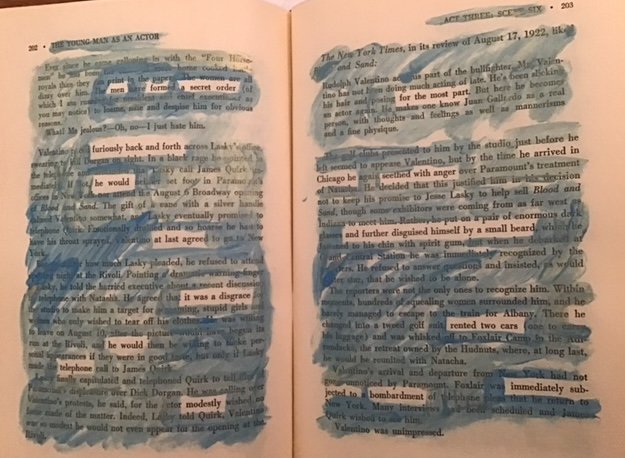 202 • THE YOUNG MAN AS AN ACTOR
Ever since he came galloping in with the "Four Horse-
men" he has been
print in the paper. The women are all
dizzy over him. men have formed a secret order (of
which I am
you may notice) to loathe, and despise him for obvious
reasons.
What! Me jealous?—Oh, no—I just hate him.
Valentino furiously back and forth across Lasky's office,
swearing to kill Dorgan on sight. In a black rage he
the telephone Lasky call James Quirk
he would set foot in Paramount's
nor attend the August 6 Broadway opening
Sand. The gift of a vane with a silver handle
somewhat, as Lasky eventually promised to
telephone Quick. Emotionally and so hoarse he had to
have his throat sprayed, at last agreed to go to New
York.
how much Lasky pleaded, he refused to attend
night at the Rivoli. Pointing a dramatic warning finger
he told the harried executive about a recent discussion
telephone with Natacha. He agreed that it was a disgrace
studio to make a target for stupid girls
who only wished to tear off his clothes.
to leave on August 10, after the picture begun its
run at the Rivoli, and he would then be willing to make per-
sonal appearances if they were in good taste, but only if Lasky
made the telephone call to James Quirk.
Lasky finally capitulated and telephoned Quirk to tell
displeasure over Dick Dorgan. He was calling over
Valentino's he said, for the actor modestly wished no
made of the matter. Indeed, Lasky told Quirk, Valentino
was so modest he would not even appear for the opening at the
Rivoli.
ACT THREE: SCENE SIX • 203
The New York Times, in its review of August 17, 1922, liked
and Sand:
Rudolph Valentino as part of the bullfighter, Mr. Valen-
tino has not been doing much acting of late. He's been slicking
his hair and posing for the most part. But here he becomes
an actor again. He makes one know Juan Gallardo as a real
person, with thoughts and feelings as well as mannerisms
and a fine physique.
The golf clubs presented to him by the studio just before he
left seemed to appease Valentino, but by the time he arrived in
Chicago he again seethed with anger over Paramount's treatment
of Natacha. He decided that this justified him in his decision
not to keep his promise to Jesse Lasky to help sell Blood and
Sand, though some exhibitors were coming from as far west
Indiana to meet him. Rather, he put on a pair of enormous dark
glasses and further disguised himself by a small beard, which he
to his chin with spirit gum, when he debarked at
Central Station he was immediately recognized by the
He refused to answer questions and insisted,
star, that he wished to be alone.
The reporters were not the only ones to recognize him. Within
moments, hundreds of squealing women surrounded him, and he
managed to escape to the train for Albany. There he
changed into a tweed golf and rented two cars (one to
his luggage) and was whisked off to Foxlair Camp in the Adi-
rondacks, the retreat owned by the Hudnuts, where, at long last,
he would be reunited with Natacha.
Valentino's arrival and departure from New York had not
gone unnoticed by Paramount. Foxlair was immediately sub-
jected to a bombardment of telephone that he return to
New York. Many interviews had been scheduled and James
Quirk wished to see him.
Valentino was unimpressed.